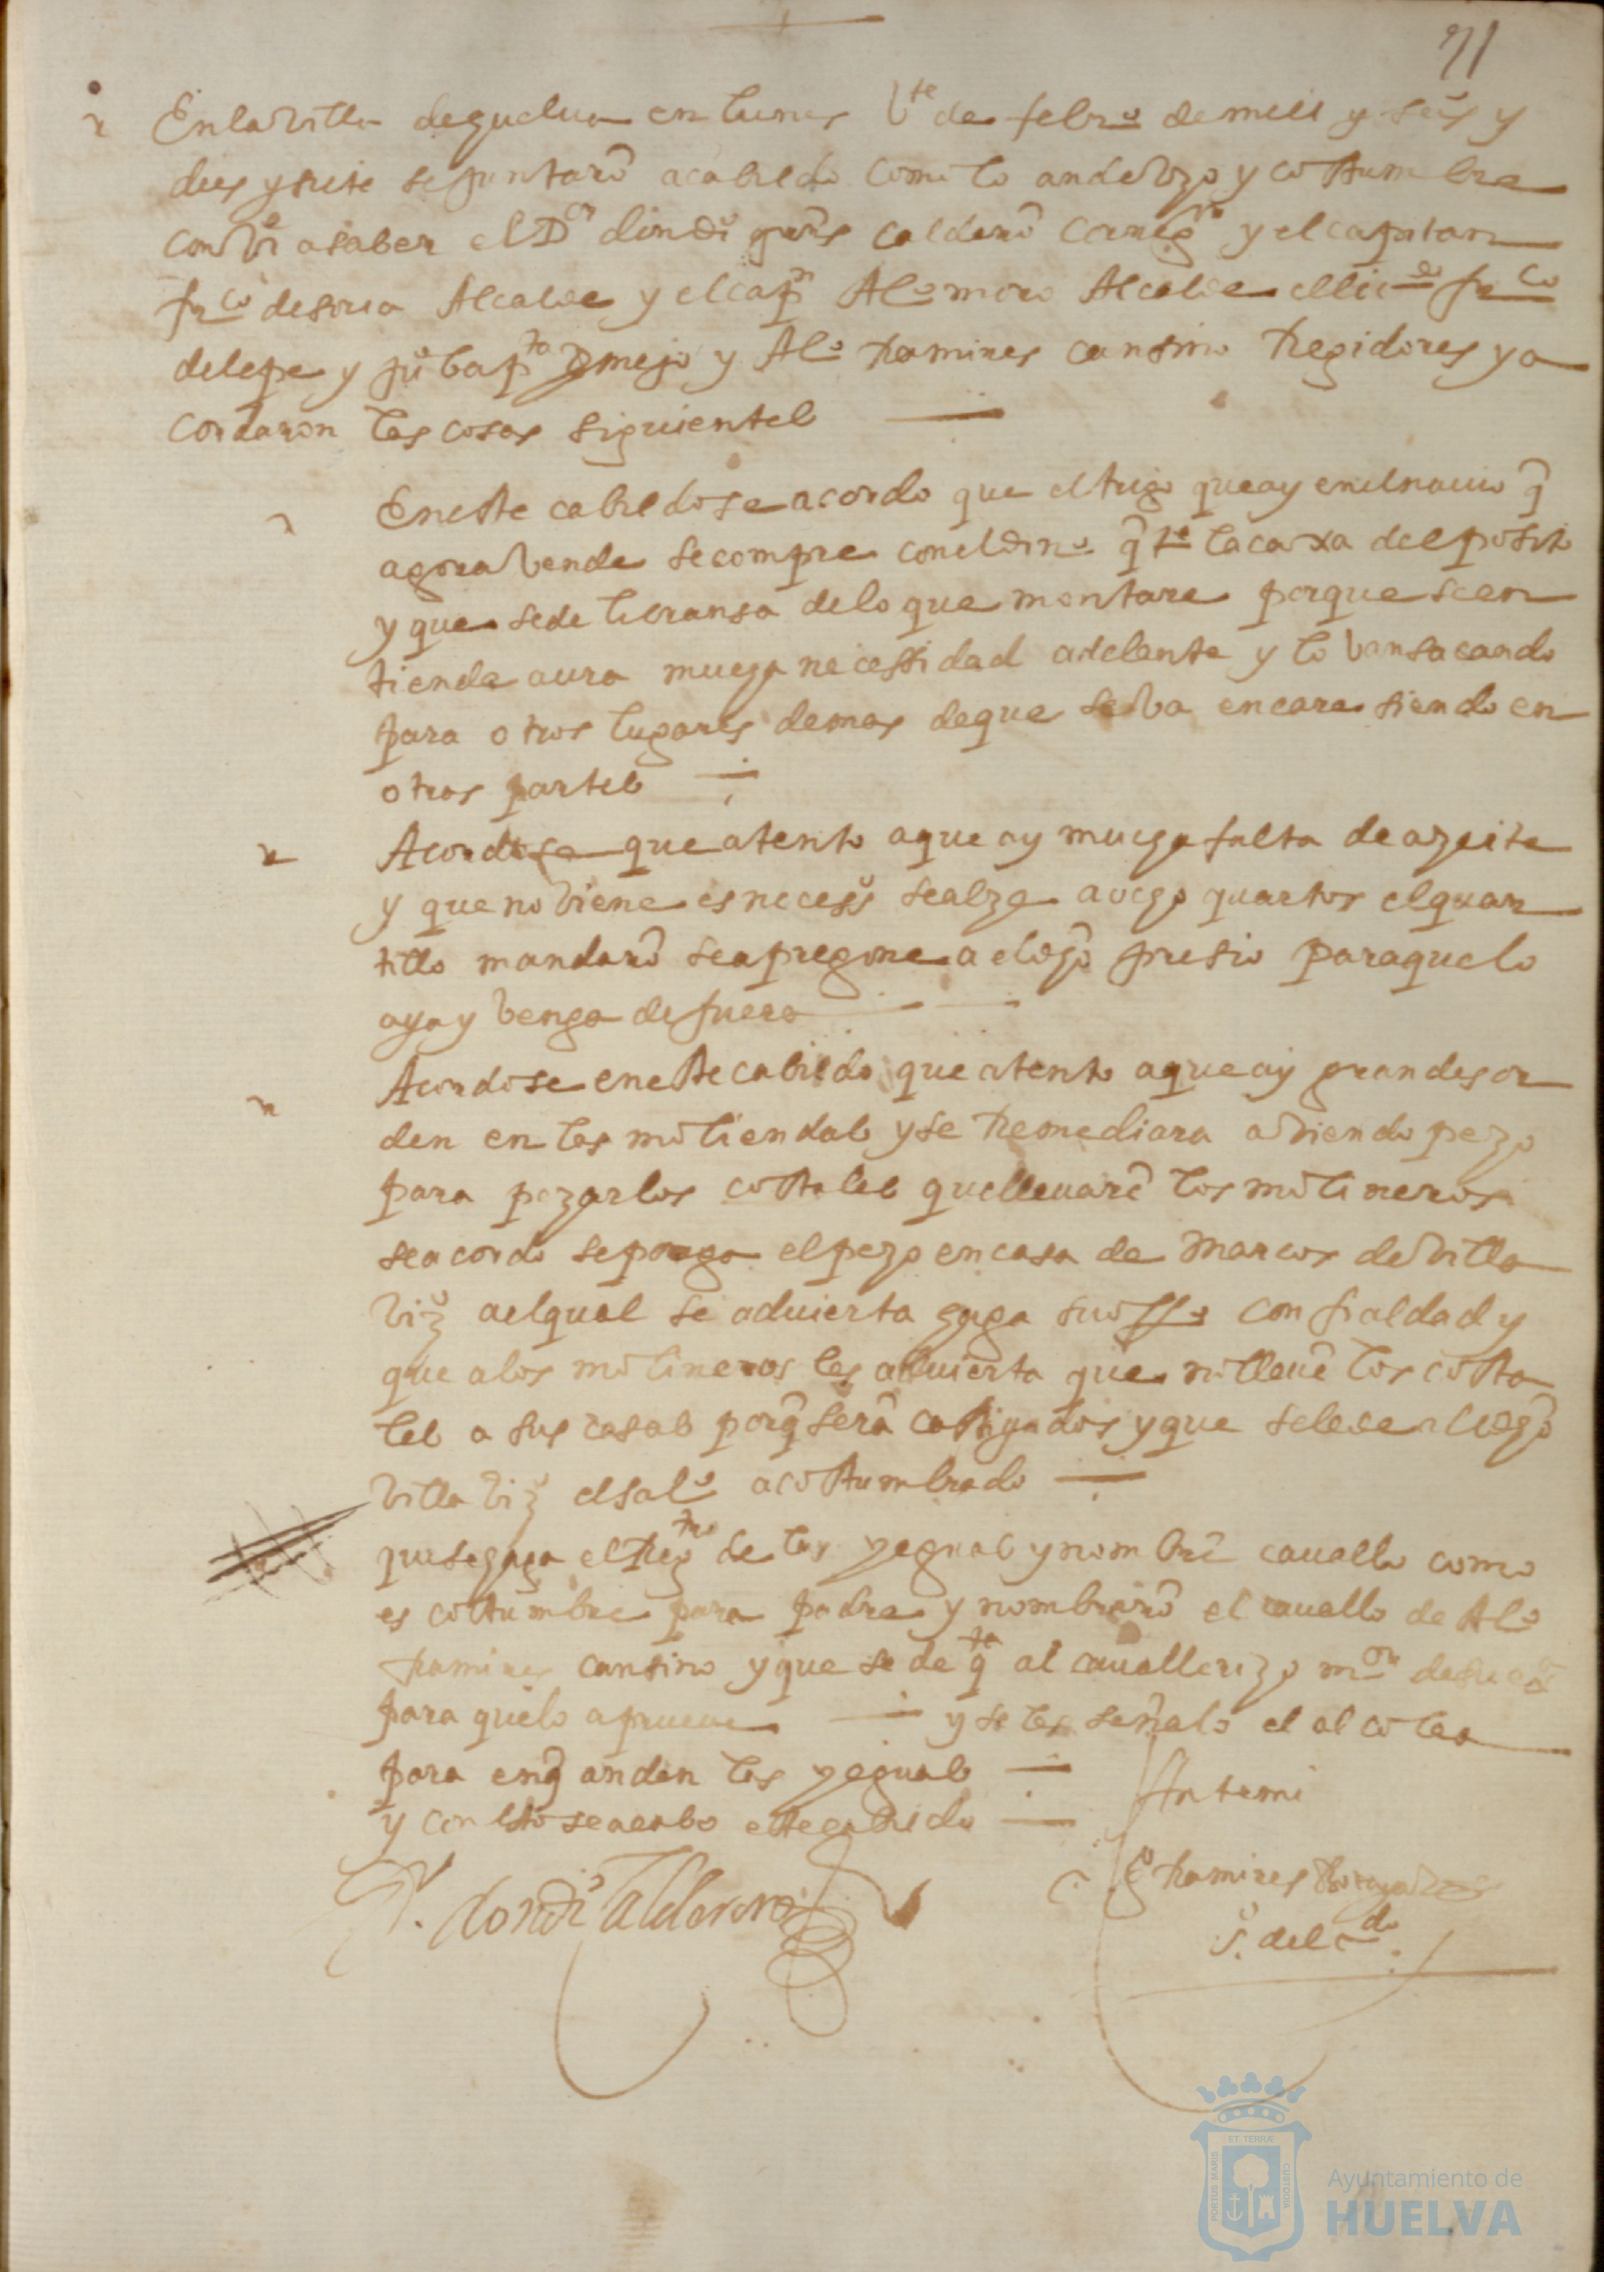 71
En la Villa de guelua en lunes Vte de febro de mill y seisº y
dies y siete se juntarõ a cabildo como lo an de Vzo y costumbre
conbiº a saber el Dor diº calderõ corregor y el capitan
frco de soria Alcalde y el capn Alº moro Alcalde el licdo frco
de lepe y juº bapta bmejo y Alº Ramires cansino Regidores y a
cordaron las cosas siguientes
En este cabildo se acordo que el trigo que ay en el nauio q̃
agora Vende se compre con el dinº q̃ tº la caxa del posito
y que se de libransa de lo que montare porque se en
tiende aura muega necessidad adelante y lo Van sacando
para otros lugares demas de que se Va encaresiendo en
otras partes
Acordose que atento a que ay muega falta de azeite
y que no Viene es necesº se alze a ocgo quartos el quar
tillo mandarõ se apregone a el dgõ presio para que lo
aya y Venga de fuera
Acordose en este cabildo que atento a que ay gran desor
den en las moliendas y se Remediara aViendo pezo
para pezar los costales que lleuarẽ los molineros
se acordo se ponga el pezo en casa de Marcos de Villa
Viz ael qual se aduierta gaga su offº con fialdad y
que a los molineros les aduierta que no lleuẽ los costa
les a sus casas porq̃ serã castigados y que se le de al dgõ
Villa Viz el salº acostumbrado
que se gaga el Regtro de las yeguas y nombrẽ cauallo como
es costumbre para padre y nombrarõ el cauallo de Alº
Ramires cansino y que se de qta al cauallerizo mor de su exª
para que lo aprueue y se les señalo el alcolea
para en q̃ anden las yeguas
y con esto se acabo este cabildo
Ante mi
Dr. don diº Calderon
Ramires
sº del cdo.
PORTUS MARIS
ET TERRÆ
CUSTODIA
Ayuntamiento de
HUELVA